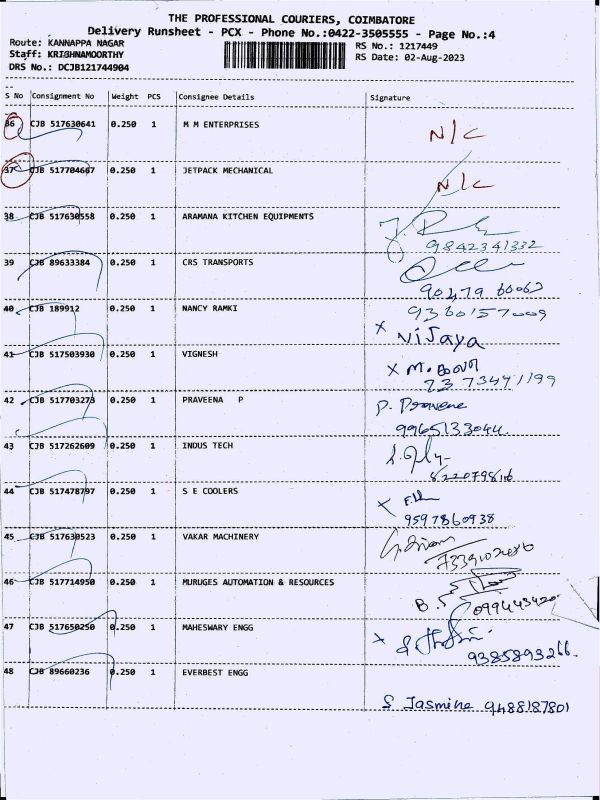 THE PROFESSIONAL COURIERS, COIMBATORE
Delivery Runsheet - PCX - Phone No.:0422-3505555 - Page No.:4
Route: KANNAPPA NAGAR
Staff: KRISHNAMOORTHY
DRS No.: DCJB121744904
RS No.: 1217449
RS Date: 02-Aug-2023
S No Consignment No Weight PCS Consignee Details Signature
36 CJB 517630641 0.250 1 M M ENTERPRISES N/C
37 CJB 517704667 0.250 1 JETPACK MECHANICAL N/C
38 CJB 517630558 0.250 1 ARAMANA KITCHEN EQUIPMENTS
9842341332
39 CJB 89633384 0.250 1 CRS TRANSPORTS
90479 60063
40 CJB 189912 0.250 1 NANCY RAMKI 9360157009
x Vijaya
41 CJB 517503930 0.250 1 VIGNESH
x M.
73 73441199
42 CJB 517703273 0.250 1 PRAVEENA P P. Praveena
9965133044
43 CJB 517262609 0.250 1 INDUS TECH
44 CJB 517478797 0.250 1 S E COOLERS x
9597860938
45 CJB 517630523 0.250 1 VAKAR MACHINERY
46 CJB 517714950 0.250 1 MURUGES AUTOMATION & RESOURCES
B.
47 CJB 517650250 0.250 1 MAHESWARY ENGG x
9385893266
48 CJB 89660236 0.250 1 EVERBEST ENGG
S Jasmine 9488187801